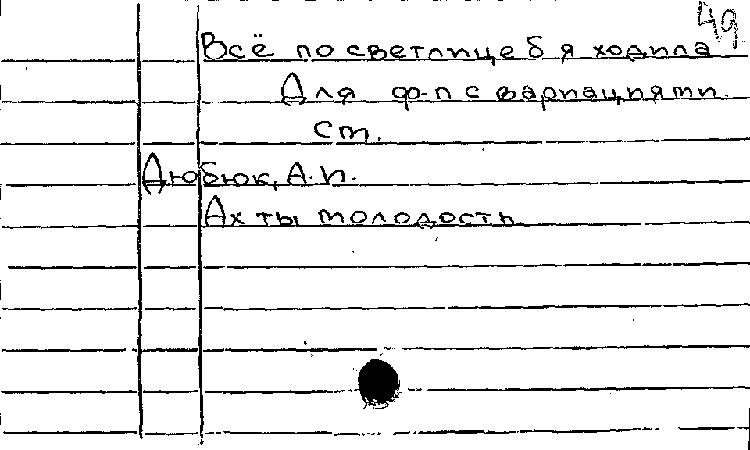 49
Всё по светлице б я ходила
Для ф-п с вариациями
См.
Дюбюк, А.И.
Ах ты молодость